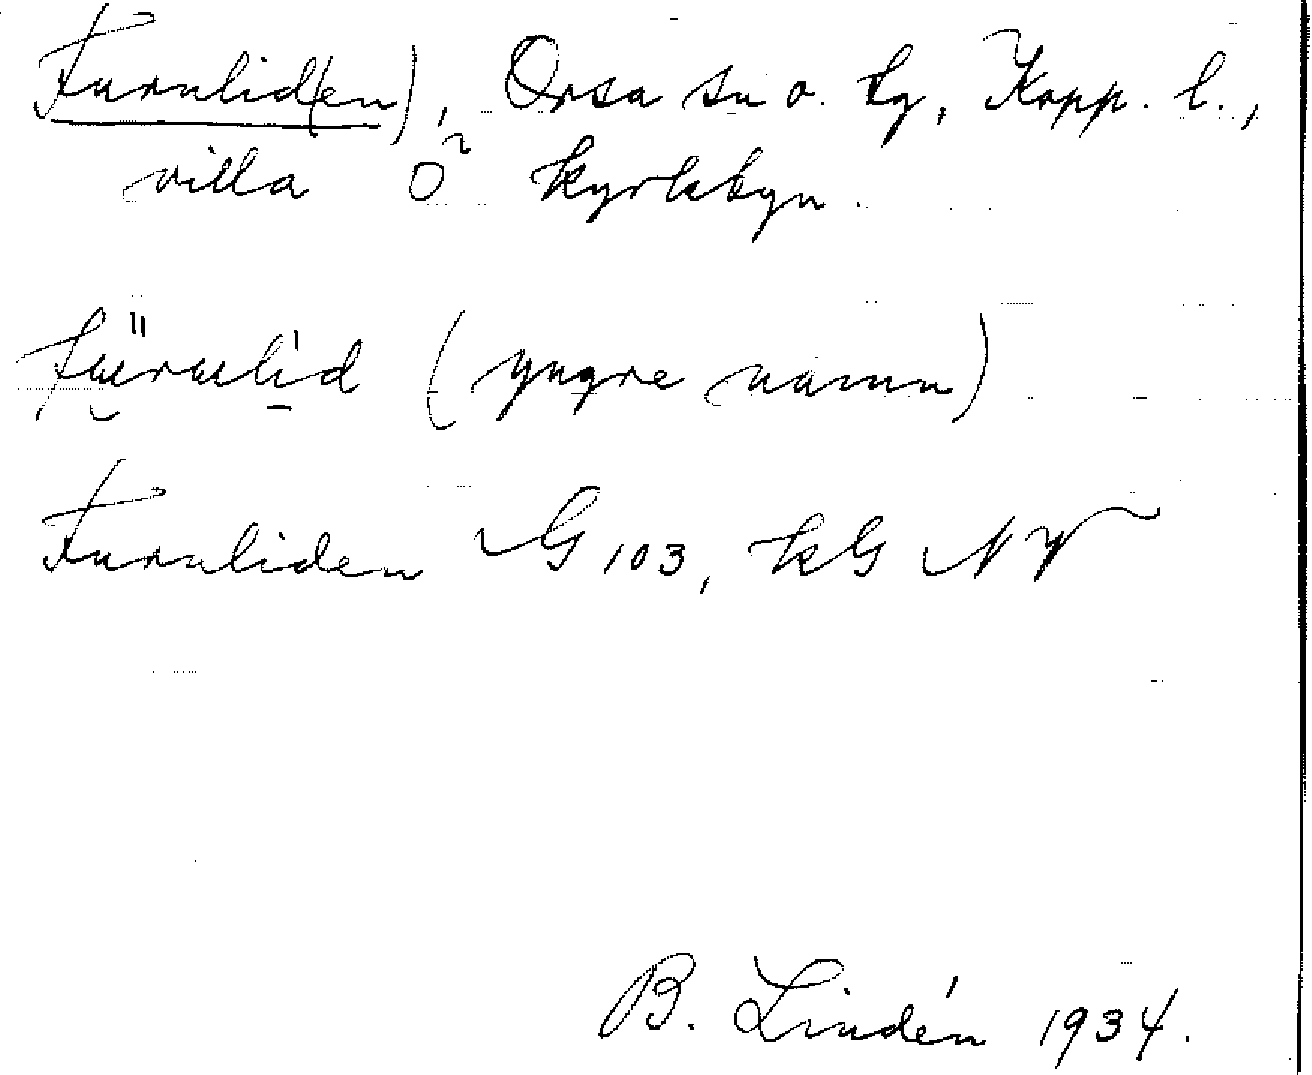 Furulid(en), Orsa sn o. tg, Kopp. l.,
villa Ö kyrkbyn.
(yngre namn)
Furuliden G 103, kG NV
B. Lindén 1934.